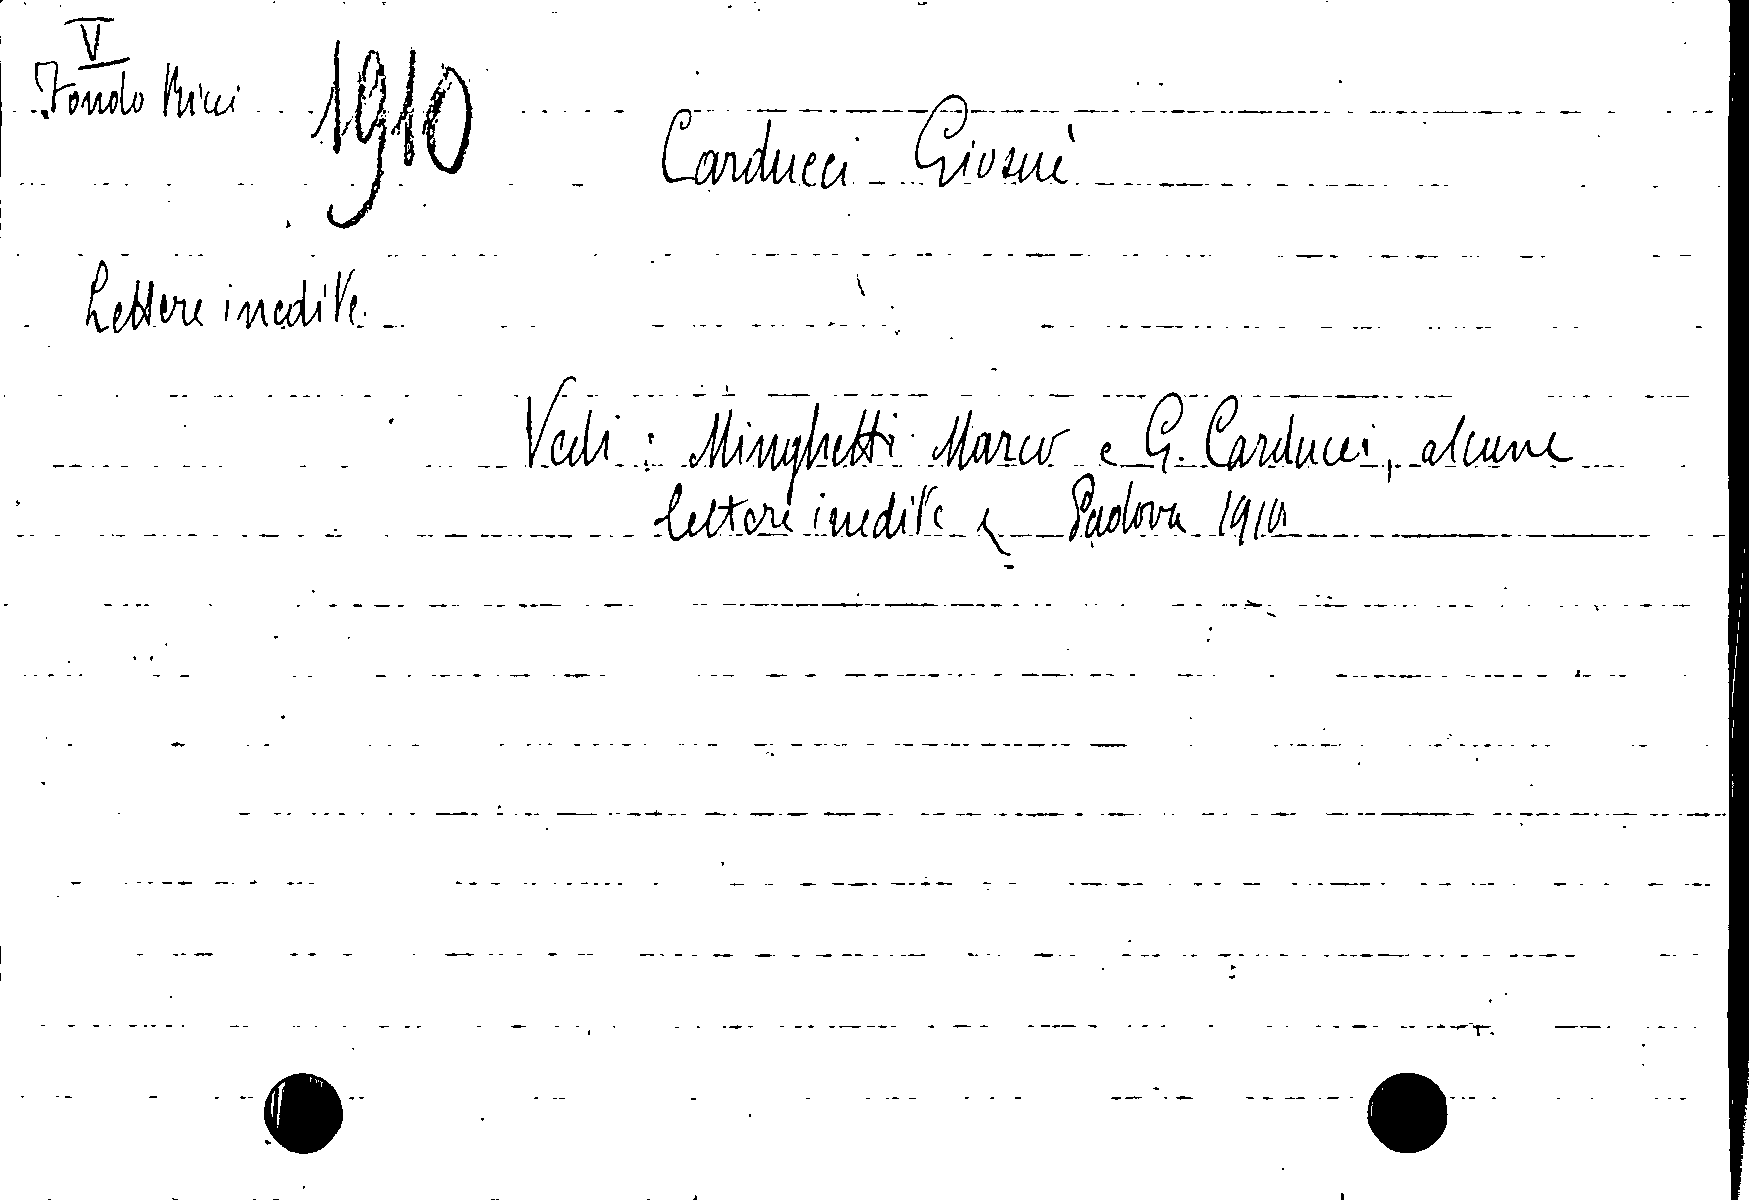 V
Fondo Ricci 1910
Carducci Giosuè
Lettere inedite
Vedi : Minghetti Marco e G. Carducci, alcune
lettere inedite Padova 1910